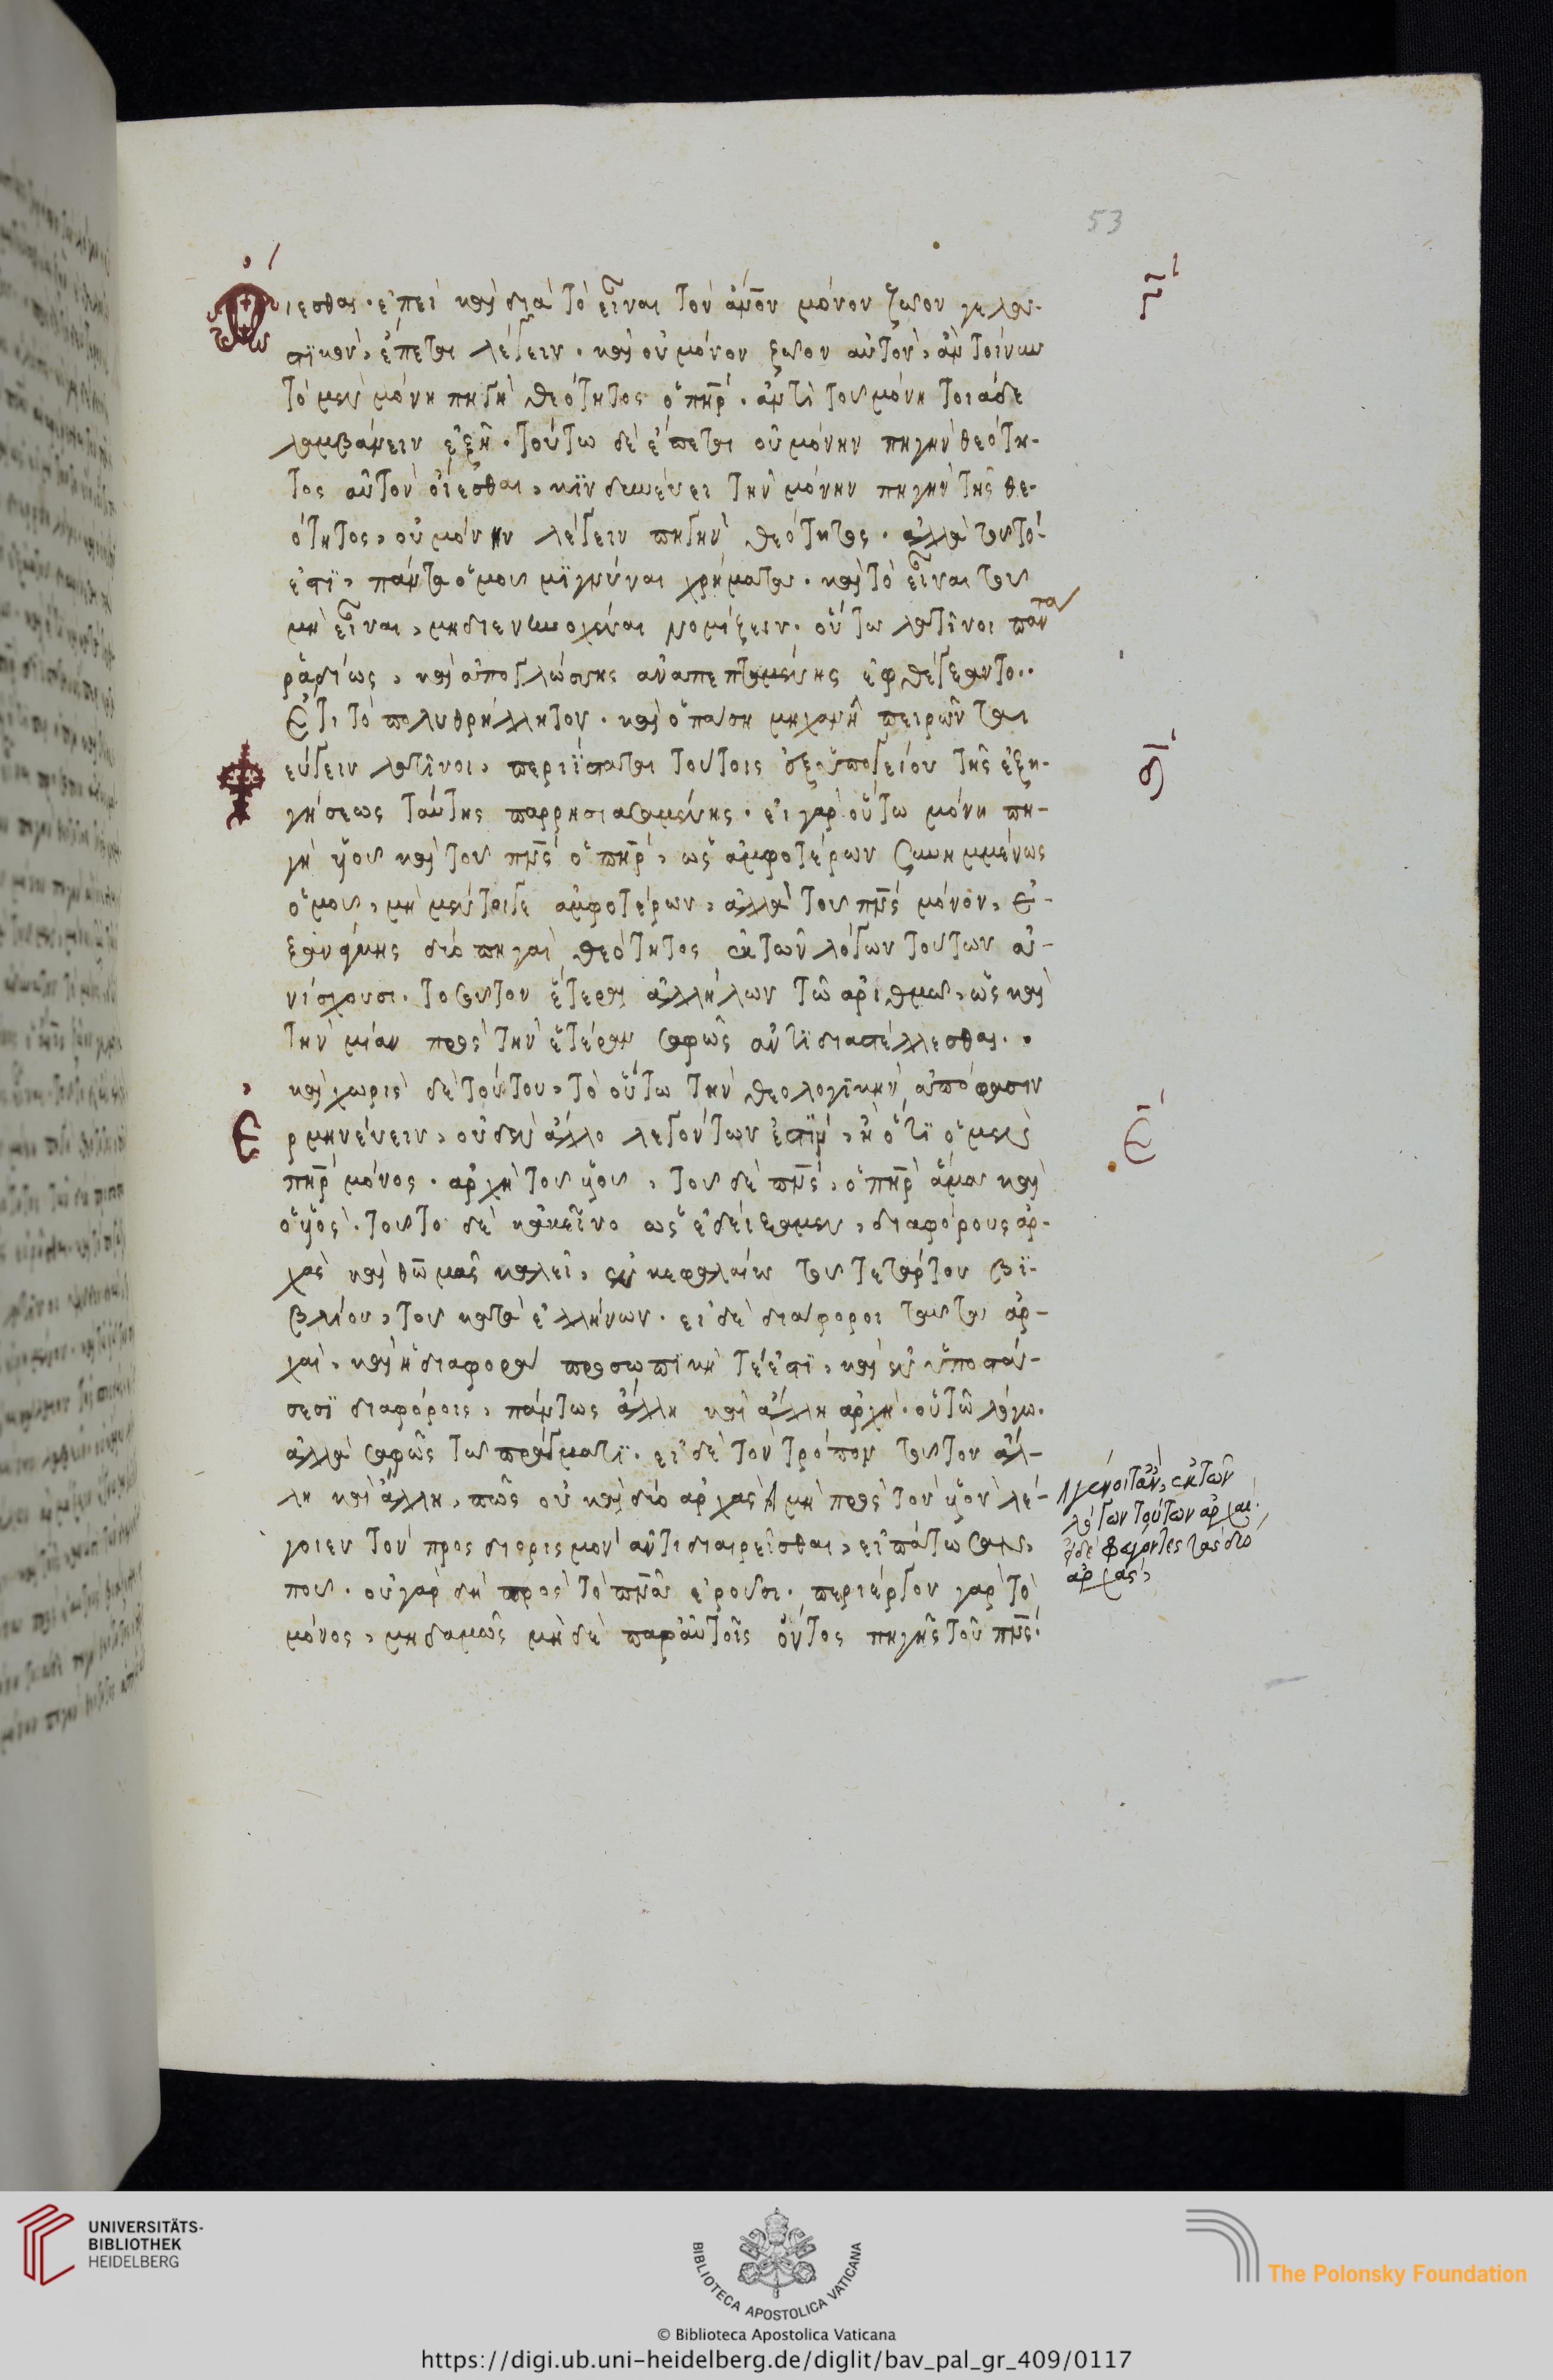 53
Οἴεσθαι· ἐπεὶ καὶ διὰ τὸ εἶναι τὸν ἄνον μόνον ζῶον γελα-
στικὸν, ἕπεται λέγειν· καὶ οὐ μόνον ζῶον αὐτὸν, ἂν τοίνυν
τὸ μὲν μόνη πηγὴ θεότητος ὁ πηρ· ἀντὶ τοῦ μόνη τοιάδε
λαμβάνειν ἐξῆ· τούτω δὲ ἕπεται οὐ μόνην πηγὴν θεότη-
τος αὐτὸν οἴεσθαι, τὴν μόνην πηγὴν τῆς θε-
ότητος, οὐ μόνην λέγειν πηγὴν θεότητος· ἀλλὰ τοῦτό
ἐστι, πάντα ὁμοῦ μιγνύναι χρήματα· καὶ τὸ εἶναι τοῦ
μὴ εἶναι, μηδὲ νομίζειν· οὕτω λατῖνοι πάντα
ῥαδίως, καὶ ἀπὸ γλώσσης ἀναπεπταμένης ἐφθέγξαντο..
Ἔτι τὸ πολυθρήλλητον· καὶ ὃ πάση μηχανῆ πειρῶνται
φεύγειν λατῖνοι, περιίσταται τούτοις ἐξ ὑπογείου τῆς ἐξη-
γήσεως ταύτης παρρησιασαμένης· εἰ γὰρ οὕτω μόνη πη-
γὴ υἱοῦ καὶ τοῦ πνς ὁ πηρ, ὡς ἀμφοτέρων συνημμένως
ὁμοῦ, μὴ μέντοιγε ἀμφοτέρων, ἀλλὰ τοῦ πνς μόνον, ἐ-
ξανάγκης δύο πηγαὶ θεότητος ἐκ τῶν λόγων τούτων ἀ-
νίσχουσι· τοσοῦτον ἕτεραι ἀλλήλων τῶ ἀριθμῶ, ὡς καὶ
τὴν μίαν πρὸς τὴν ἑτέραν σαφῶς ἀντιδιαστέλλεσθαι. .
καὶ χωρὶς δὲ τούτου, τὸ οὕτω τὴν θεολογικὴν ἀπόφασιν
Ἑρμηνεύειν, οὐδὲν ἄλλο λεγόντων ἐστὶν, ἢ ὅτι ὁ μὲν
πηρ μόνος· ἀρχὴ τοῦ υἱοῦ, τοῦ δὲ πνς, ὁ πηρ ἅμα καὶ
ὁ υἱός· τοῦτο δὲ κἀκεῖνο ὡς ἐδείξαμεν, διαφόρους ἀρ-
χὰς καὶ θωμᾶς καλεῖ, ἐν κεφαλαίω τοῦ τετάρτου βι-
βλίου, τοῦ κατὰ ἑλλήνων· εἰ δὲ διάφοροι ταῦτα ἀρ-
χαὶ, καὶ ἡ διαφορὰ προσωπικὴ τέ ἐστι, καὶ ἐν ὑποστά-
σεσι διαφόροις, πάντως ἄλλη καὶ ἄλλη ἀρχὴ· οὐ τῶ λόγω·
ἀλλὰ σαφῶς τῶ πράγματι· εἰ δὲ τὸν τρόπον τοῦτον ἄλ-
λη καὶ ἄλλη, πῶς οὐ καὶ δύο ἀρχὰς μὴ πρὸς τὸν υἱὸν λέ-
γοιεν τὸν προσδιορισμὸν ἀντιδιαιρεῖσθαι, εἰπάτωσαν
ποῦ· οὐ γὰρ δὴ πρὸς τὸ πνᾶ ἐροῦσι· περίεργον γὰρ τὸ
μόνος, μηδαμῶς μὴ δὲ παρ αὐτοῖς ὄντος πηγῆς τοῦ πνς·
γ
δ
ε
γένοιτ ἂν, ἐκ τῶν
λόγων τούτων ἀρχαί·
εἰ δὲ φεύγοντες τὰς δύο
ἀρχὰς,
UNIVERSITÄTS-
BIBLIOTHEK
HEIDELBERG
BIBLIOTECA APOSTOLICA VATICANA
The Polonsky Foundation
© Biblioteca Apostolica Vaticana
https://digi.ub.uni-heidelberg.de/diglit/bav_pal_gr_409/0117